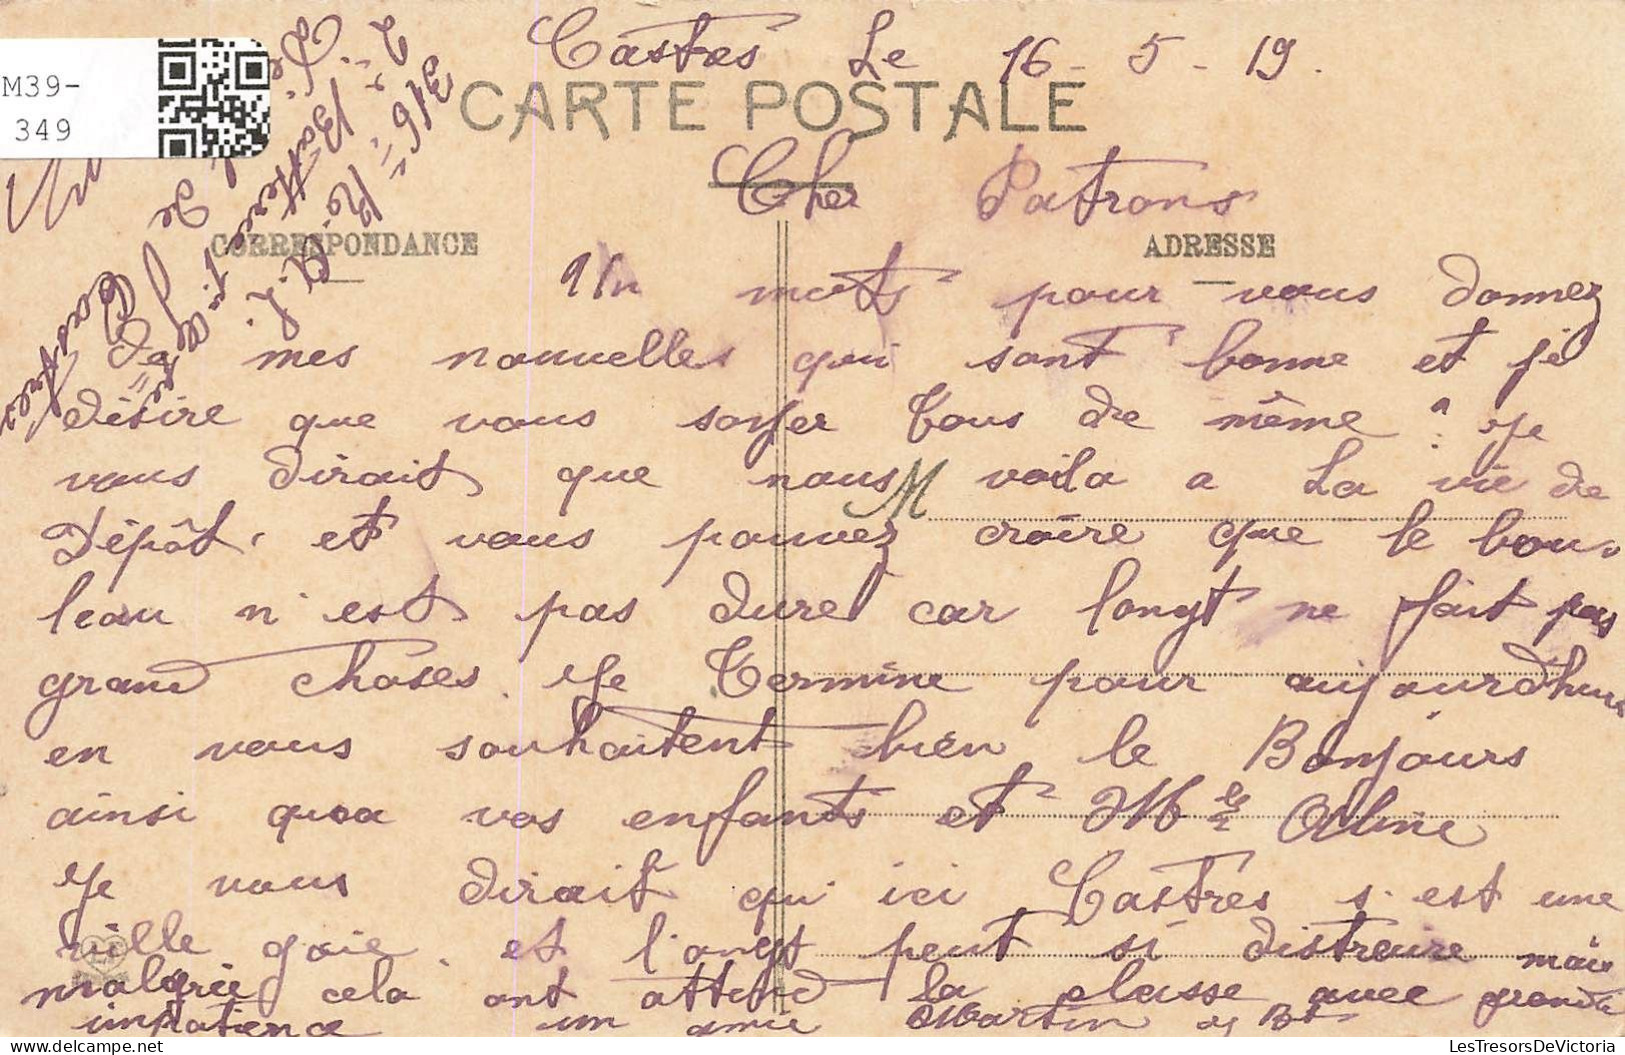 M39-
349
Castres Le 16 - 5 - 19.
CARTE POSTALE
Cher Patrons
CORRESPONDANCE
ADRESSE
Un mots pour vous donnez
de mes nouvelles qui sont bonne et je
désire que vous soyer tous de même. Je
vous dirait que nous voila a La vie de
M
Dépôt. et vous pouvez croire que le bou-
leau n'est pas dure car longt ne fait pas
grand choses. Je termine pour aujourdhui
en vous souhaitent bien le Bonjours
ainsi quoa vos enfants et Mlle Albine
Je vous dirait qui ici Castres s'est une
ville gaie. et l'ongt peut si distreire mais
malgrée cela ont attend la classe avec grande
impatience un amie Martin
3e
Batterie
Castres
LesTresorsDeVictoria